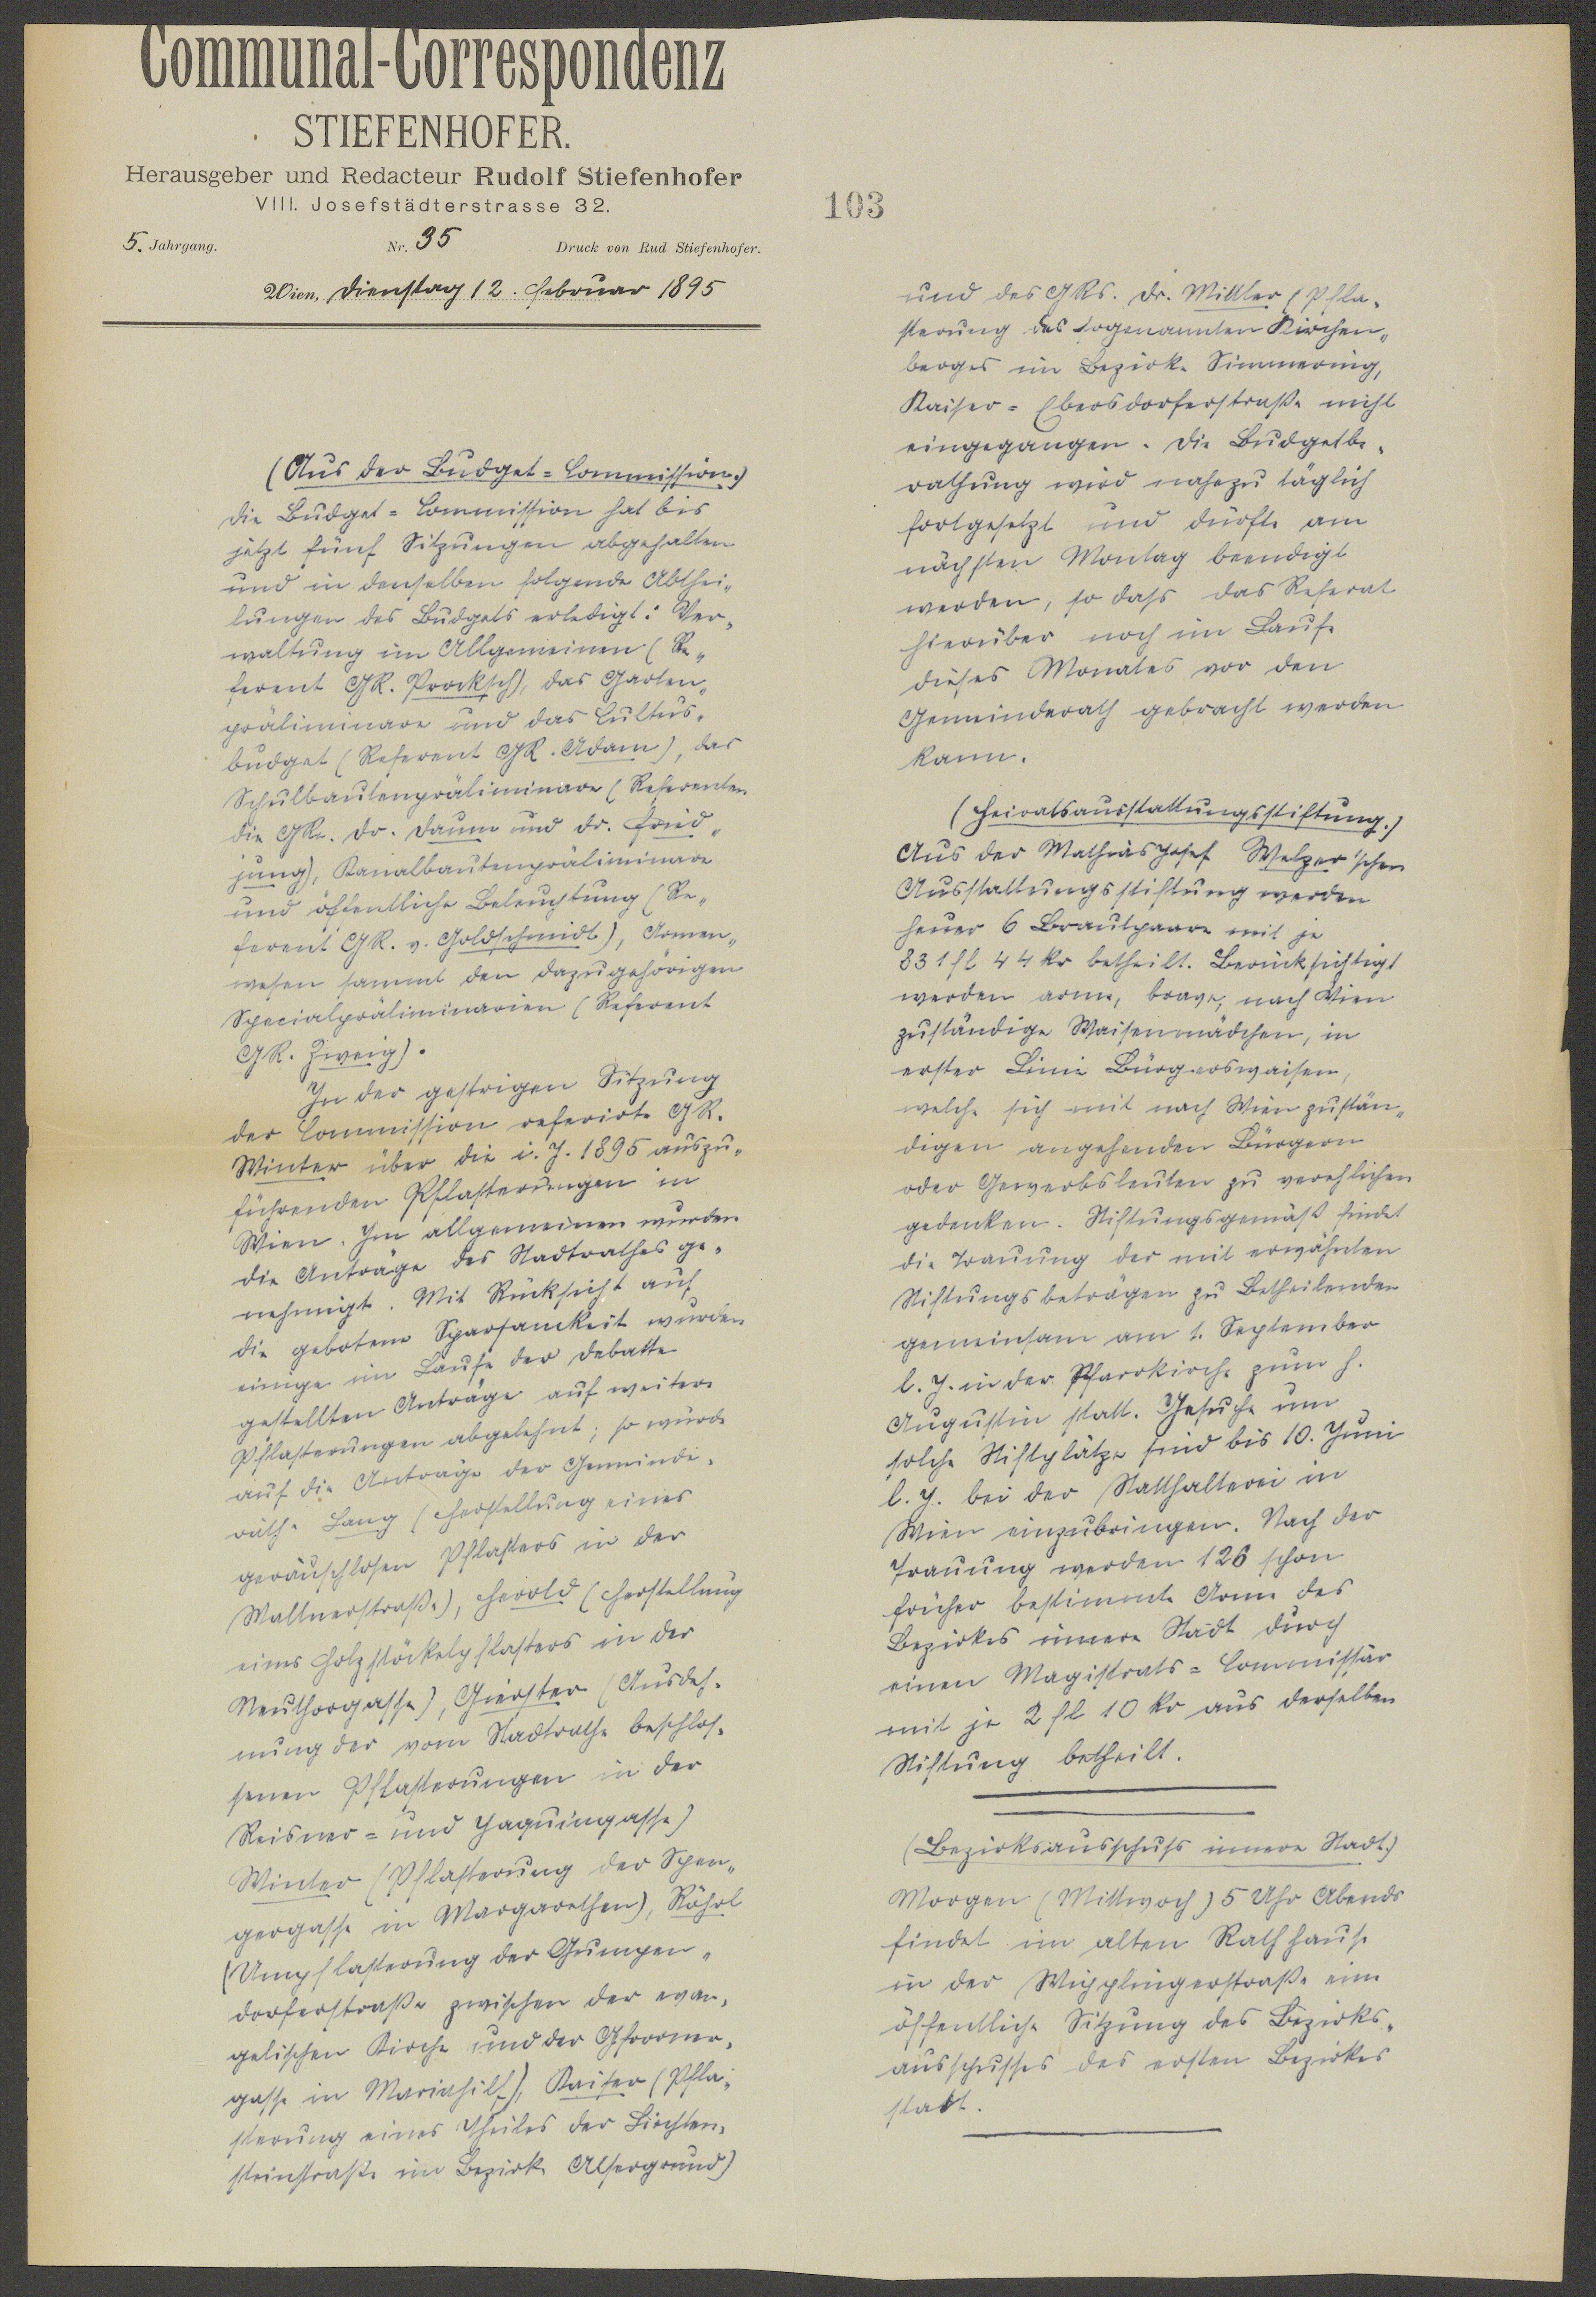 Communal-Correspondenz
STIEFENHOFER.
Herausgeber und Redacteur Rudolf Stiefenhofer
VIII. Josefstädterstrasse 32.
5. Jahrgang. Nr. 35 Druck von Rud Stiefenhofer.
Wien, Dienstag 12. Februar 1895
(Aus der Budget=Commission.)
Die Budget=Commission hat bis
jetzt fünf Sitzungen abgehalten
und in denselben folgende Abthei„
lungen des Budgets erledigt: Ver„
waltung im Allgemeinen (Re„
ferent GR. Procksch), das Garten„
präliminare und das Cultus„
budget (Referent GR. Adam), das
Schulbautenpräliminare (Referenten
die GRe. Dr. Daum und Dr. Fried„
jung), Kanalbautenpräliminare
und öffentliche Beleuchtung (Re„
ferent GR. v. Goldschmidt), Armen„
wesen sammt den dazugehörigen
Specialpräliminarien (Referent
GR. Zweig).
In der gestrigen Sitzung
der Commission referirte GR.
Winter über die i. J. 1895 auszu„
führenden Pflasterungen in
Wien. Im allgemeinen wurden
die Anträge des Stadtrathes ge„
nehmigt. Mit Rücksicht auf
die gebotene Sparsamkeit wurden
einige im Laufe der Debatte
gestellten Anträge auf weitere
Pflasterungen abgelehnt; so wurde
auf die Anträge der Gemeinde„
räthe Lang (Herstellung eines
geräuschlosen Pflasters in der
Wallnerstraße), Herold (Herstellung
eines Holzstöckelpflasters in der
Neuthorgasse), Gierster (Ausdeh„
nung der vom Stadtrathe beschlos„
senen Pflasterungen in der
Reisner= und Jaquingasse)
Winter (Pflasterung der Spen„
gergasse in Margarethen), Röhrl
(Umpflasterung der Gumpen„
dorferstraße zwischen der evan„
gelischen Kirche und der Gfrorner„
gasse in Mariahilf), Kaiser (Pfla„
sterung eines Theiles der Liechten„
steinstraße im Bezirke Alsergrund)
103
und des GRs. Dr. Mittler (Pfla„
sterung des sogenannten Kirchen„
berges im Bezirke Simmering,
Kaiser=Ebersdorferstraße nicht
eingegangen. Die Budgetbe„
rathung wird nahezu täglich
fortgesetzt und dürfte am
nächsten Montag beendigt
werden, so dass das Referat
hierüber noch im Laufe
dieses Monates vor den
Gemeinderath gebracht werden
kann.
(Heiratsausstattungsstiftung.)
Aus der Mathias Josef Welzer'schen
Ausstattungsstiftung werden
heuer 6 Brautpaare mit je
831 fl 44 kr betheilt. Berücksichtigt
werden arme, brave, nach Wien
zuständige Waisenmädchen, in
erster Linie Bürgerswaisen,
welche sich mit nach Wien zustän„
digen angehenden Bürgern
oder Gewerbsleuten zu verehlichen
gedenken. Stiftungsgemäß findet
die Trauung der mit erwähnten
Stiftungsbeträgen zu Betheilenden
gemeinsam am 1. September
l. J. in der Pfarrkirche zum h.
Augustin statt. Gesuche um
solche Stiftplätze sind bis 10. Juni
l. J. bei der Statthalterei in
Wien einzubringen. Nach der
Trauung werden 126 schon
früher bestimmte Arme des
Bezirkes innere Stadt durch
einen Magistrats=Commissär
mit je 2 fl 10 kr aus derselben
Stiftung betheilt.
(Bezirksausschuss innere Stadt.)
Morgen (Mittwoch) 5 Uhr Abends
findet im alten Rathhause
in der Wipplingerstraße eine
öffentliche Sitzung des Bezirks„
ausschusses des ersten Bezirkes
statt.